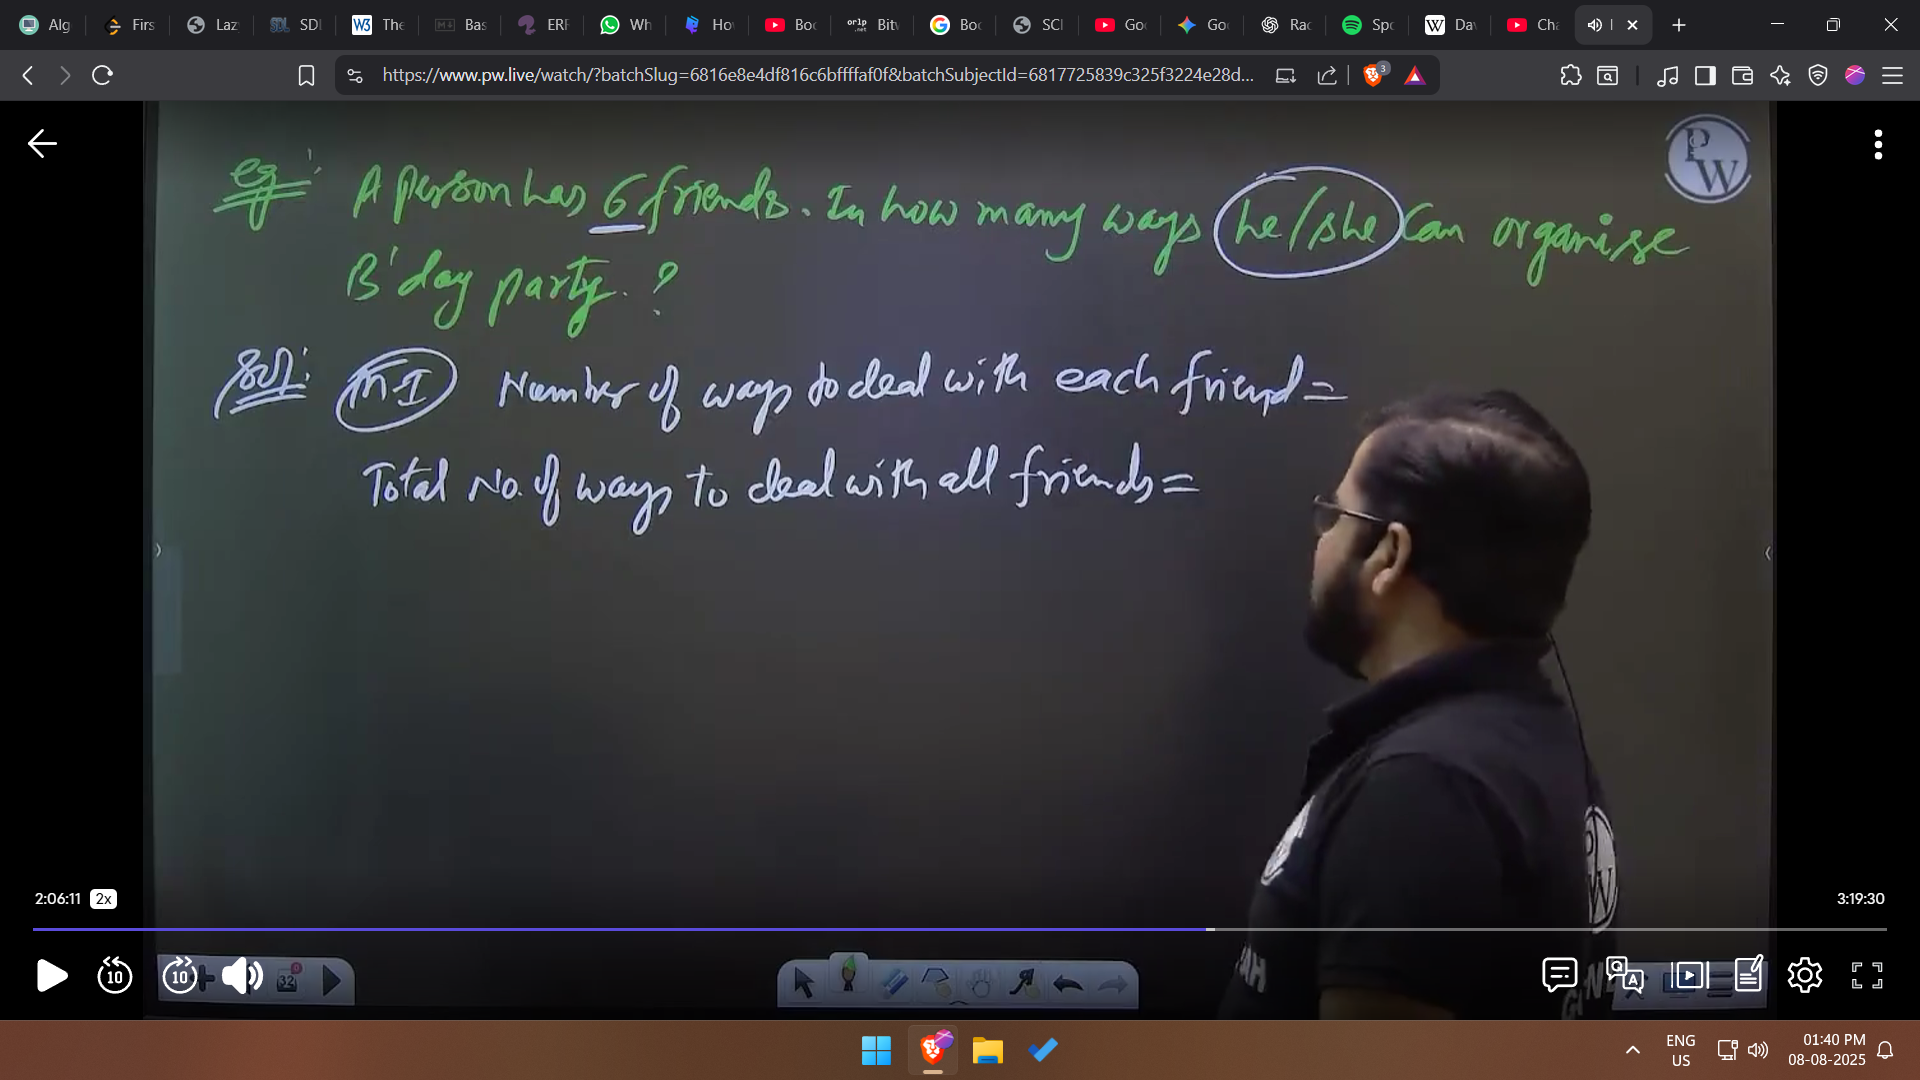 Alg
Firs
Laz
SDI
The
Bas
ERF
Wh
Hov
Boo
orlp .net
Bitw
Boo
SCI
Goo
Goo
Rac
Spo
Dav
Cha
https://www.pw.live/watch/?batchSlug=6816e8e4df816c6bffffaf0f&batchSubjectId=6817725839c325f3224e28d...
3
PW
eg:
A person has 6 friends. In how many ways he/she Can organise
B'day party. ?
Sol: M-I Number of ways to deal with each friend =
Total No. of ways to deal with all friends =
2:06:11 2x
3:19:30
10
10
32
ENG
US
01:40 PM
08-08-2025